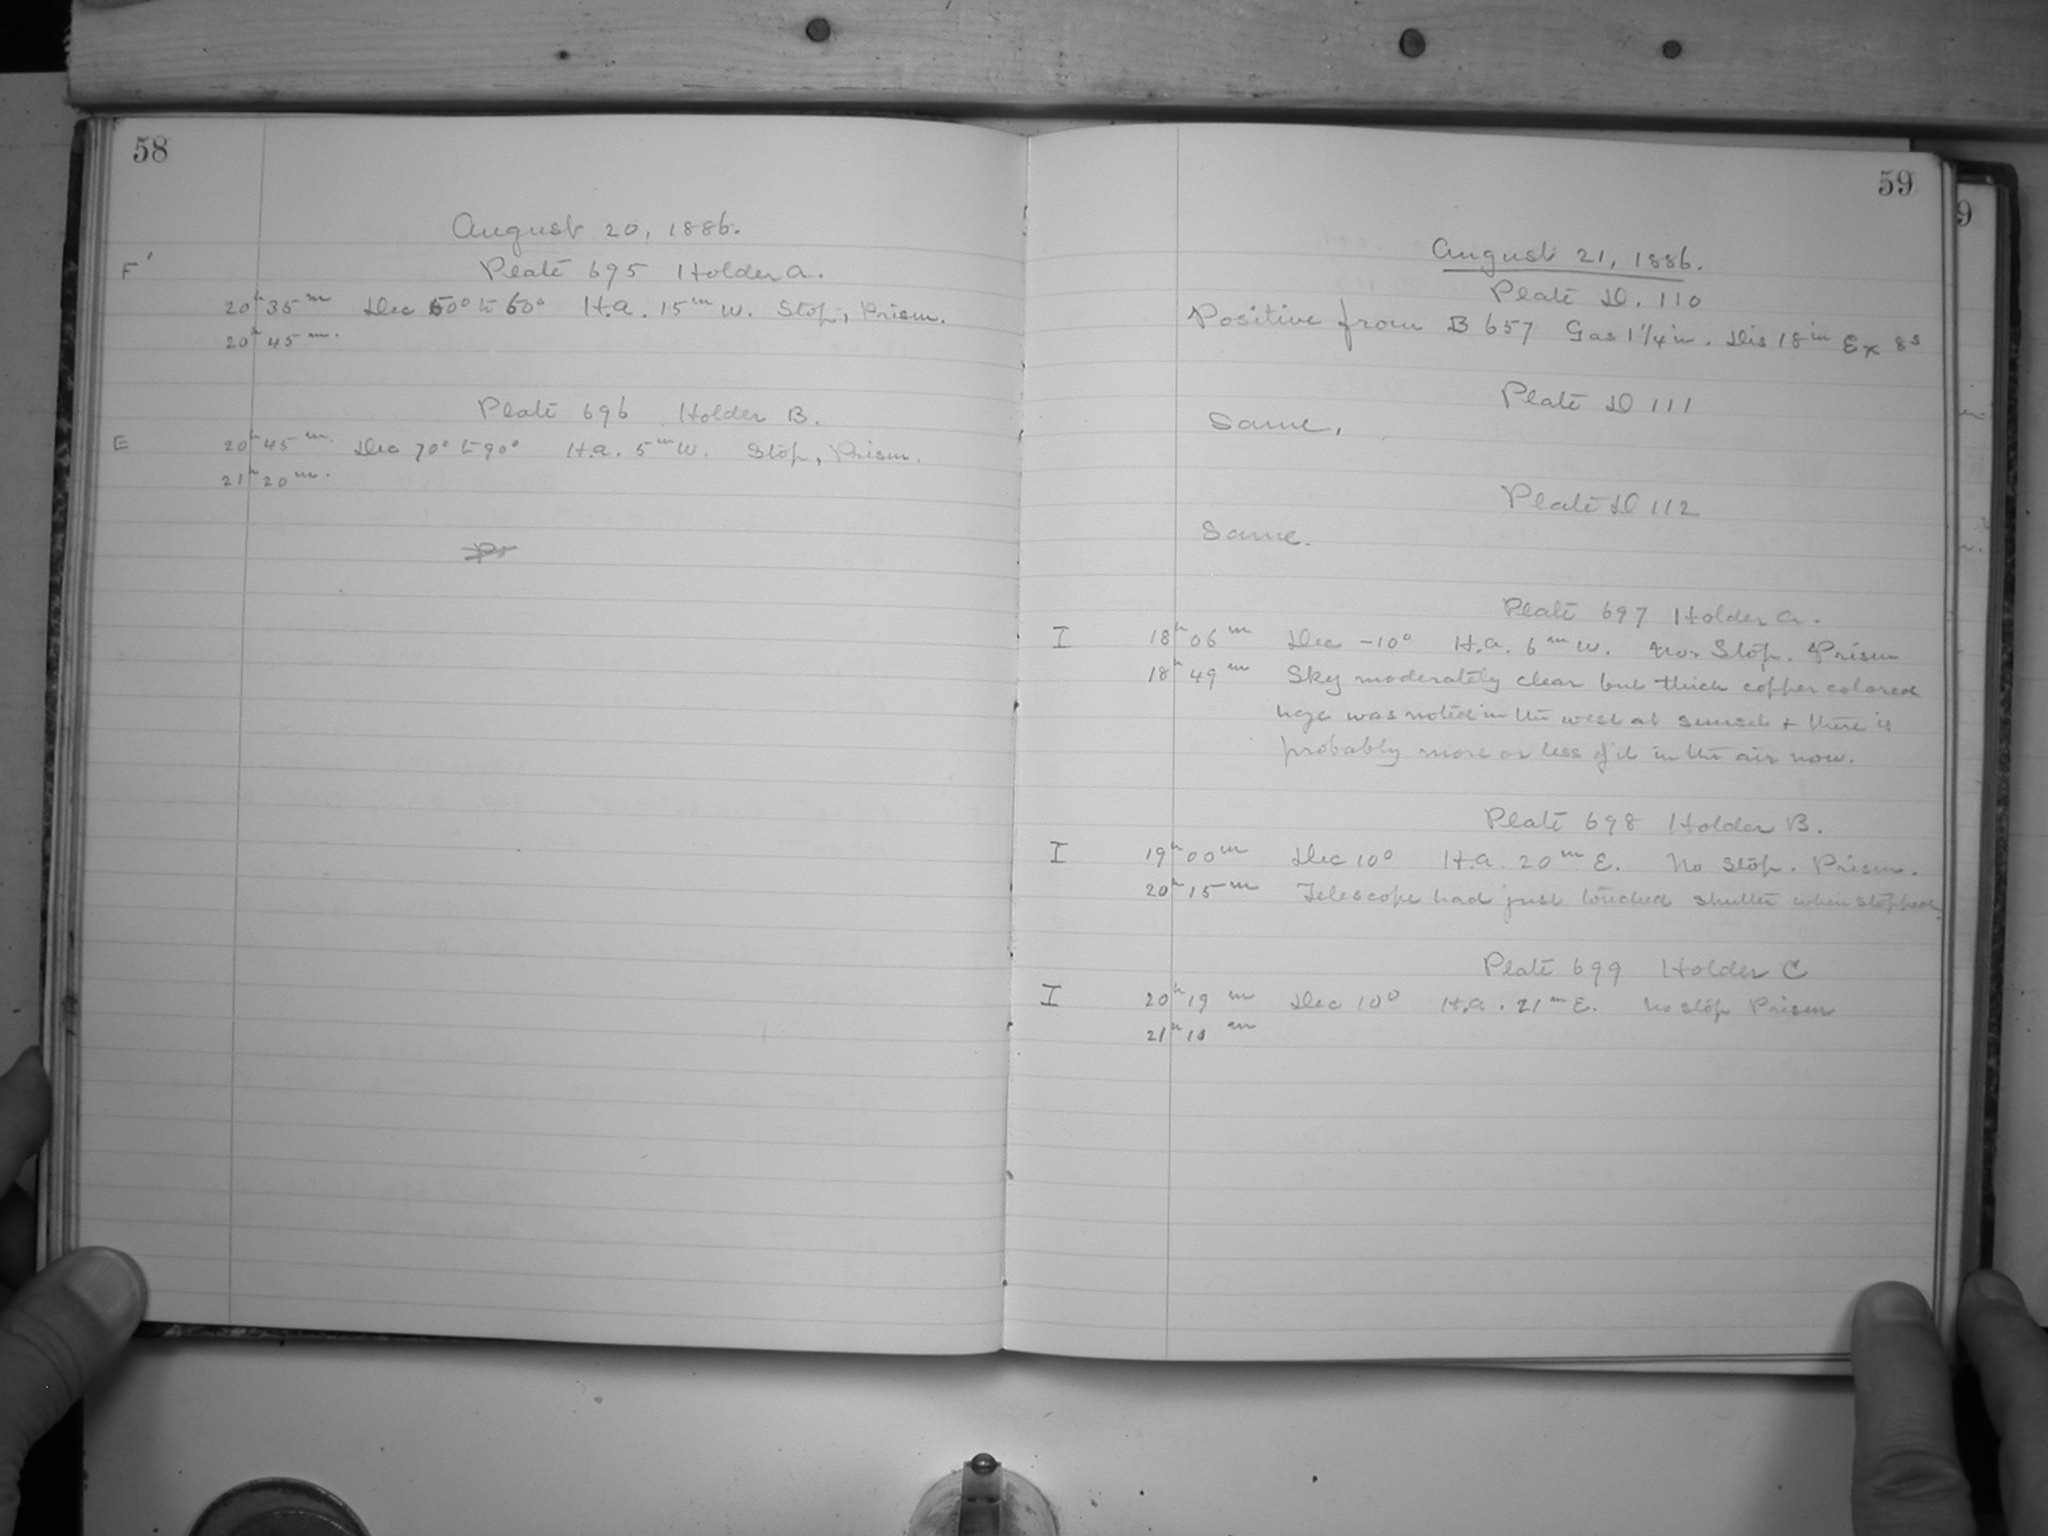 58
August 20, 1886.
F' Plate 695 Holder A.
20h 35m Dec 50° to 60° H.A. 15m W. Stop, Prism.
20h 45m.
Plate 696 Holder B.
E 20h 45m. Dec 70° to 90° H.A. 5m W. Stop, Prism.
21h 20m.
59
August 21, 1886.
Plate D. 110
Positive from B 657 Gas 1 1/4 in. Dis 18in Ex 8s
Plate D 111
Same.
Plate D 112
Same.
Plate 697 Holder A.
I 18h 06m Dec -10° H.A. 6m W. No Stop. Prism
18h 49m Sky moderately clear but thick copper colored
haze was noted in the west at sunset & there is
probably more or less of it in the air now.
Plate 698 Holder B.
I 19h 00m Dec 10° H.A. 20m E. No Stop. Prism.
20h 15m Telescope had just touched shutter when stopped.
Plate 699 Holder C
I 20h 19m Dec 10° H.A. 21m E. No stop Prism
21h 10m
9